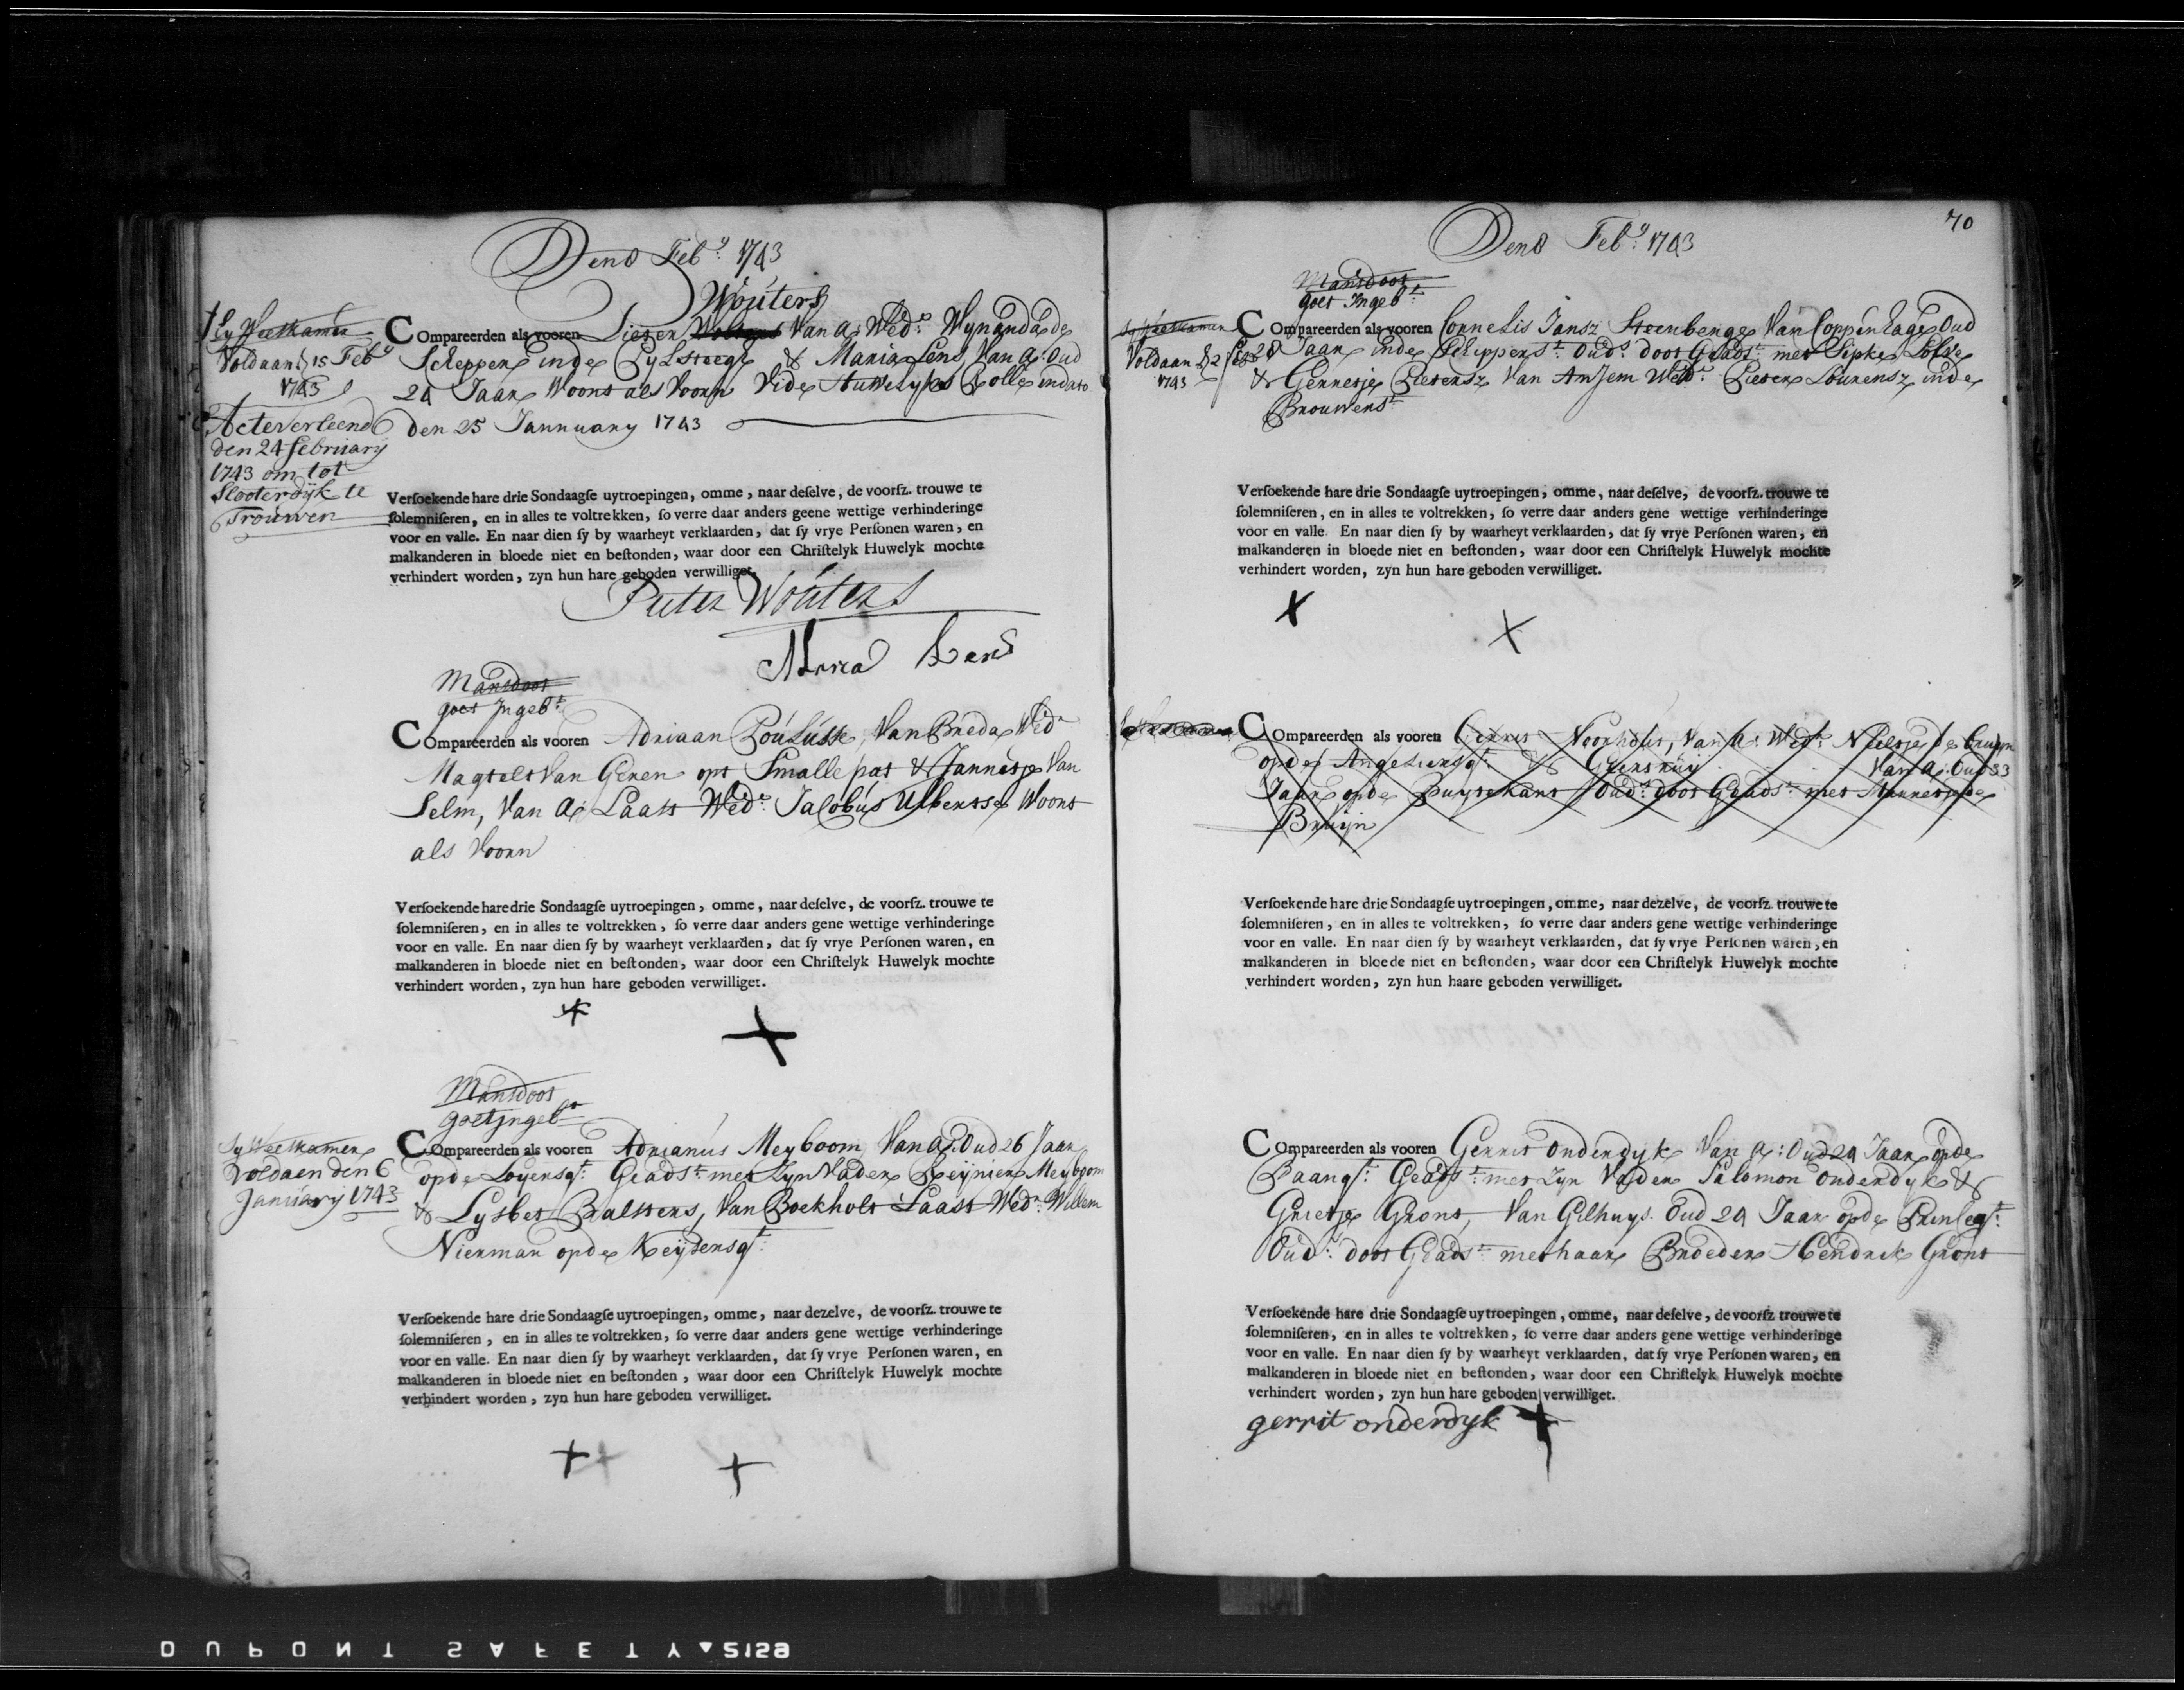 Den 8 Feb.y 1743
Wouters
Sy Weeskamer
Voldaan 15 Feb.y
1743
Acte verleend
den 24 february
1743 om tot
Slooterdijk te
Trouwen
COmpareerden als vooren Pieter Van A: Wed.r Wynanda de
Schepper inde Pylsteegh & Maria Lens, Van A: Oud
24 Jaar Woont als Voorn Vide Huwelyks Rolle in dato
den 25 Jannuary 1743
Versoekende hare drie Sondaagse uytroepingen, omme, naar deselve, de voorsz. trouwe te
solemniseren, en in alles te voltrekken, so verre daar anders geene wettige verhinderinge
voor en valle. En naar dien sy by waarheyt verklaarden, dat sy vrye Personen waren, en
malkanderen in bloede niet en bestonden, waar door een Christelyk Huwelyk mochte
verhindert worden, zyn hun hare geboden verwilliget.
Pieter Wouters
Maria Lens
Mansdoot
goet Ingeb.t
COmpareerden als vooren Adriaan Van Breda, Wed.r
Magtelt Van Geren opt Smallepat & Jannetje Van
Selm, Van A: Laatt Wed.e Jacobus Albertse Woont
als Voorn
Versoekende hare drie Sondaagse uytroepingen, omme, naar deselve, de voorsz. trouwe te
solemniseren, en in alles te voltrekken, so verre daar anders gene wettige verhinderinge
voor en valle. En naar dien sy by waarheyt verklaarden, dat sy vrye Personen waren, en
malkanderen in bloede niet en bestonden, waar door een Christelyk Huwelyk mochte
verhindert worden, zyn hun hare geboden verwilliget.
Mansdoot
goet Ingeb.t
Sy Weeskamer
Voldaen den 6
January 1743
COmpareerden als vooren Adrianus Meyboom, Van A: Oud 26 Jaar
opde Loyersg.t Geads.t met Zyn Vader Reijnier Meyboom
& Lysbet Balsters, Van Boekholt Laast Wed.e Willem
Nierman opde Keysersg.t
Versoekende hare drie Sondaagse uytroepingen, omme, naar dezelve, de voorsz. trouwe te
solemniseren, en in alles te voltrekken, so verre daar anders gene wettige verhinderinge
voor en valle. En naar dien sy by waarheyt verklaarden, dat sy vrye Personen waren, en
malkanderen in bloede niet en bestonden, waar door een Christelyk Huwelyk mochte
verhindert worden, zyn hun hare geboden verwilliget.
70
Den 8 Feb.y 1743
Mansdoot
goet Ingeb.t
Sy Weeskamer
Voldaan
1743
COmpareerden als vooren Cornelis Jansz Steenberge Van Coppenhage Oud
28 Jaar inde Schippersst. Oud.s doot Geads.t met Sipke
& Gerretje Pieters Van Arnhem Wed.e Pieter Lourensz inde
Brouwerst
Versoekende hare drie Sondaagse uytroepingen, omme, naar deselve, de voorsz. trouwe te
solemniseren, en in alles te voltrekken, so verre daar anders gene wettige verhinderinge
voor en valle. En naar dien sy by waarheyt verklaarden, dat sy vrye Personen waren, en
malkanderen in bloede niet en bestonden, waar door een Christelyk Huwelyk mochte
verhindert worden, zyn hun hare geboden verwilliget.
COmpareerden als vooren Gerrit Noorhout, Van A: Wed.r Neeltje de Bruyn
opde Angeliersg.t & Van A: Oud 33
Jaar opde Buytekant Oud.s doot Geads.t met Mannetje de
Bruijn
Versoekende hare drie Sondaagse uytroepingen, omme, naar dezelve, de voorsz. trouwe te
solemniseren, en in alles te voltrekken, so verre daar anders gene wettige verhinderinge
voor en valle. En naar dien sy by waarheyt verklaarden, dat sy vrye Personen waren, en
malkanderen in bloede niet en bestonden, waar door een Christelyk Huwelyk mochte
verhindert worden, zyn hun haare geboden verwilliget.
COmpareerden als vooren Gerrit Onderdyk Van A: Oud 24 Jaar opde
Baangt. Geads.t met Zyn Vader Salomon Onderdyk &
Grietje Gront, Van Gilhuys. Oud 24 Jaar opde Prinseg.t
Oud.s doot Geads.t met haar Broeder Hendrik Gront
Versoekende hare drie Sondaagse uytroepingen, omme, naar deselve, de voorsz. trouwe te
solemniseren, en in alles te voltrekken, so verre daar anders gene wettige verhinderinge
voor en valle. En naar dien sy by waarheyt verklaarden, dat sy vrye Personen waren, en
malkanderen in bloede niet en bestonden, waar door een Christelyk Huwelyk mochte
verhindert worden, zyn hun hare geboden verwilliget.
gerrit onderdyk
DUPONT SAFETY 5129